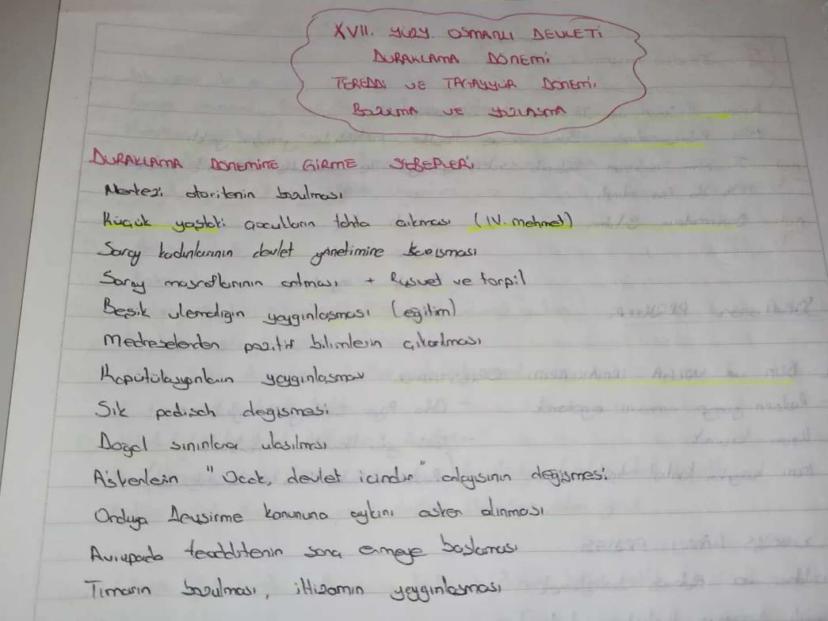 XVII. YÜZY. OSMANLI DEVLETİ
DURAKLAMA DÖNEMİ
TEREDDİ VE TAGAYYUR DÖNEMİ.
BOZULMA VE
DURAKLAMA DÖNEMİNE GİRME SEBEPLERİ
Merkezi otoritenin bozulması
Küçük yaştaki çocukların tahta çıkması (IV. mehmet)
Saray kadınlarının devlet yönetimine karışması
Saray masraflarının artması + Rüşvet ve torpil
Beşik ulemalığın yaygınlaşması (eğitim)
Medreselerden pozitif bilimlerin çıkarılması
Kapütülasyonların yaygınlaşması
Sık padişah değişmesi
Doğal sınırlara ulaşılması
Askerlerin "Ocak, devlet içindir" algısının değişmesi
Orduya devşirme kanununa aykırı asker alınması
Avrupada feodalitenin sona ermeye başlaması
Tımarın bozulması, iltizamın yaygınlaşması